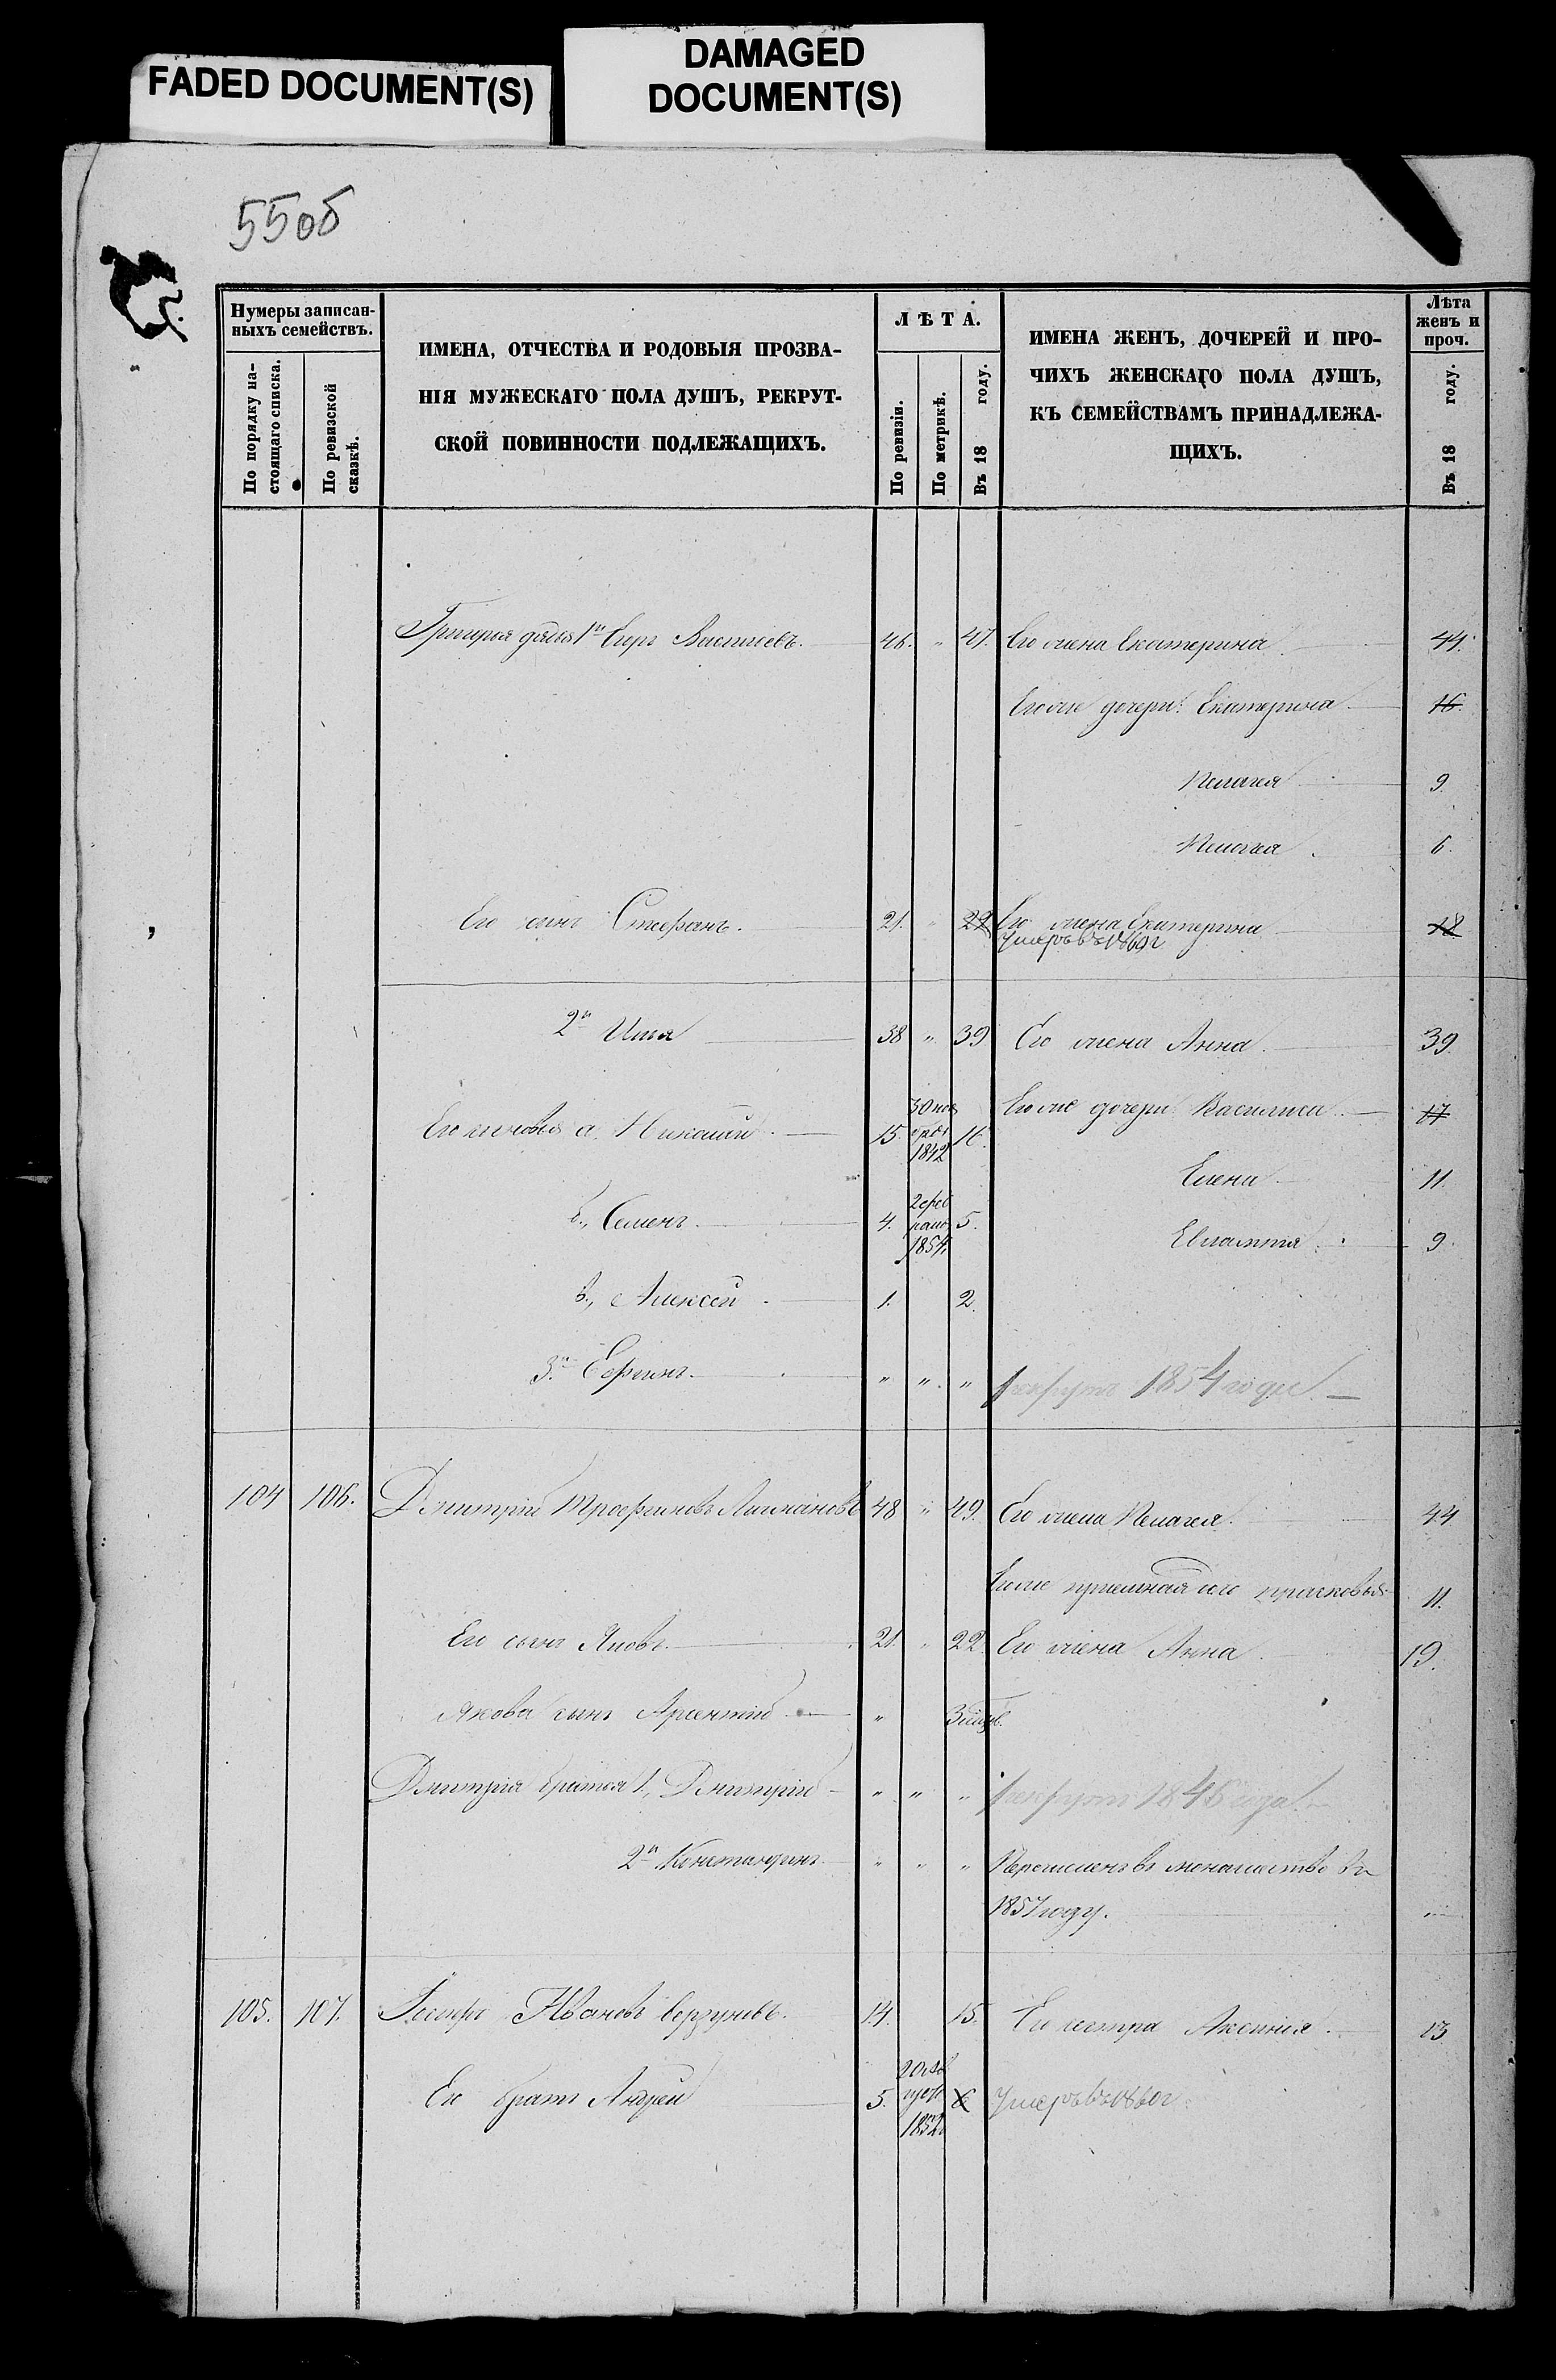 FADED DOCUMENT(S)
DAMAGED
DOCUMENT(S)
55об
Нумеры записан-
ныхъ семействъ.
По порядку на-
стоящаго списка.
По ревизской
сказкѣ.
ИМЕНА, ОТЧЕСТВА И РОДОВЫЯ ПРОЗВА-
НІЯ МУЖЕСКАГО ПОЛА ДУШЪ, РЕКРУТ-
СКОЙ ПОВИННОСТИ ПОДЛЕЖАЩИХЪ.
ЛѢТА.
По ревизіи.
По метрикѣ.
Въ 18 году.
ИМЕНА ЖЕНЪ, ДОЧЕРЕЙ И ПРО-
ЧИХЪ ЖЕНСКАГО ПОЛА ДУШЪ,
КЪ СЕМЕЙСТВАМЪ ПРИНАДЛЕЖА-
ЩИХЪ.
Лѣта
женъ и
проч.
Въ 18 году.
Григорья дядья 1й Васильевъ. 46. " 47. Его жена Екатерина 44.
Егоже дочери: Екатерина 16.
Пелагея 9.
Пелагея 6.
Его сынъ Стефанъ. 21. " 22 Его жена Екатерина 18
Умеръ въ 1860г
2й Илья 38 " 39 Его жена Анна. 39.
Егоже дочери Василиса 17
Его сыновья а, Николай 15. 30 ноя
бря
1842 16.
Елена 11.
б., Семенъ. 4. 2 фев
раля
1854. 5.
Евлампія 9.
в., Алексей 1. 2.
3й Ефимъ. " " " рекрутъ 1854 года.
104 106. Дмитрій Трофимовъ 48 " 49. Его жена Пелагея. 44
Егоже пріемная прасковья 11.
Его сынъ Яковъ. 21. " 22. Его жена Анна. 19.
Якова сынъ Арсентій "
Дмитрія братья 1, Дмитрій " " " рекрутъ 1846 года.
2й Константинъ. " " " Перечисленъ въ монашество въ
1857 году.
105. 107. Ивановъ 14. 15. Его сестра Аксинья. 13
Его братъ Андрей 5. 1852 6 Умеръ въ 1860г